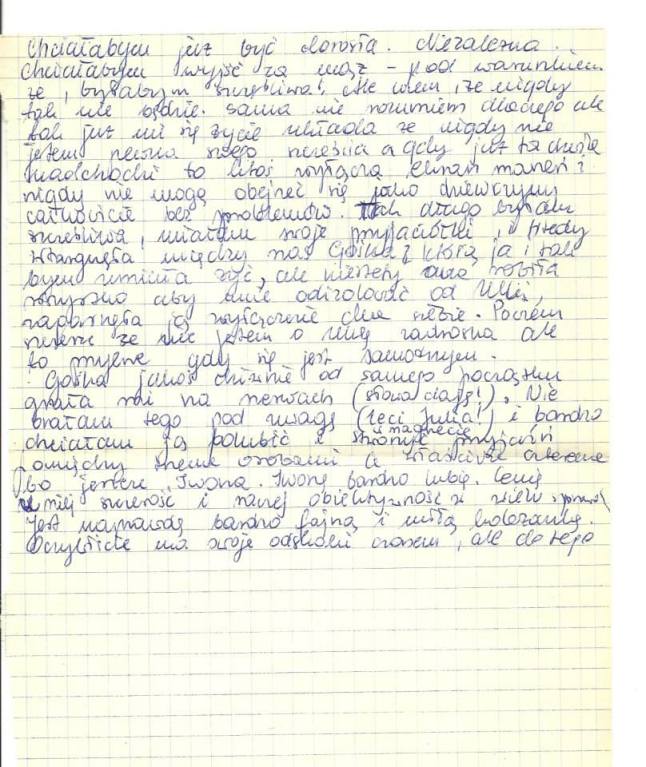 Chciałabym już być dorosła. Niezależna.
Chciałabym wyjść za mąż – pod warunkiem
że, byłabym szczęśliwa! Ale wiem, że nigdy
tak nie będzie. Sama nie rozumiem dlaczego ale
tak już mi się życie układa że nigdy nie
jestem pewna swego szczęścia a gdy już ta chwila
nadchodzi to ktoś wyłącza
nigdy nie mogę obejść się jako dziewczyny
całkowicie bez problemów. Tak długo byłam
szczęśliwa, miałam swoje przyjaciółki, i wtedy
wtargnęła między nas Gośka z którą ja i tak
bym umiała żyć, ale niestety ona robiła
wszystko aby mnie odizolować od Uli,
zagarnęła ją wyłącznie dla siebie. Powiem
szczerze że nie jestem o Ulę zazdrosna ale
to przykre gdy się jest samotnym.
Gośka jakoś dziwnie od samego początku
grała mi na nerwach (słowa daję!). Nie
brałam tego pod uwagę (leci Julia!) i bardzo
w magnecie
chciałam ją polubić i stworzyć przyjaźń
pomiędzy trzema osobami a właściwie czterema
bo jeszcze Iwona. Iwonę bardzo lubię. Cenię
w niej szczerość i raczej obiektywność z wielu
Jest naprawdę bardzo fajną i miłą koleżanką.
Oczywiście ma swoje odchyłki czasem, ale do tego